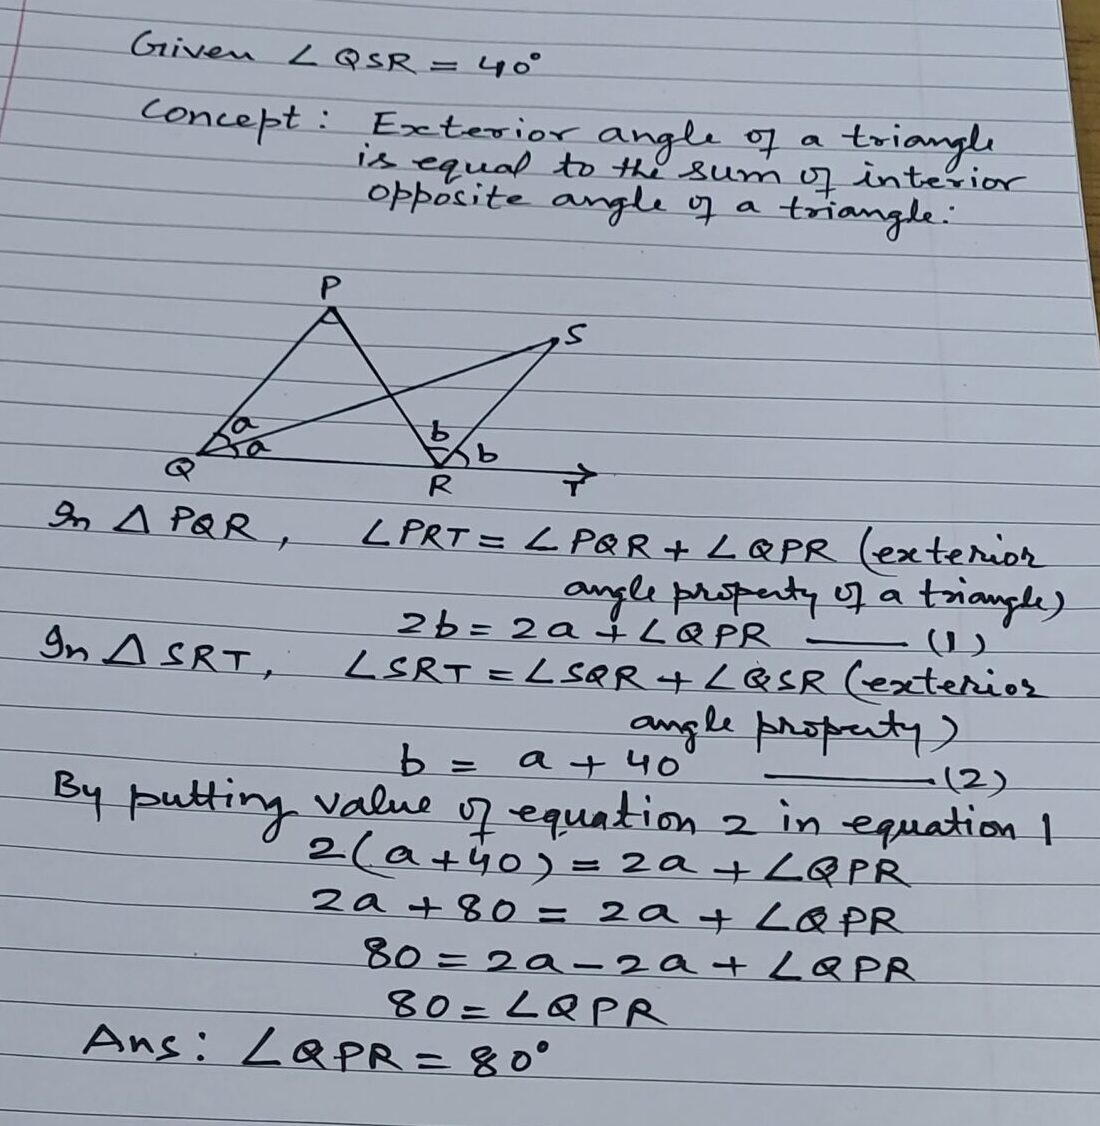 Given ∠QSR = 40°
Concept: Exterior angle of a triangle
is equal to the sum of interior
opposite angle of a triangle:
P
S
a
a
b
b
Q
R
T
In △ PQR, ∠PRT = ∠PQR + ∠QPR (exterior
angle property of a triangle)
2b = 2a + ∠QPR —— (1)
In △ SRT, ∠SRT = ∠SQR + ∠QSR (exterior
angle property)
b = a + 40° —— (2)
By putting value of equation 2 in equation 1
2(a+40) = 2a + ∠QPR
2a + 80 = 2a + ∠QPR
80 = 2a - 2a + ∠QPR
80 = ∠QPR
Ans: ∠QPR = 80°